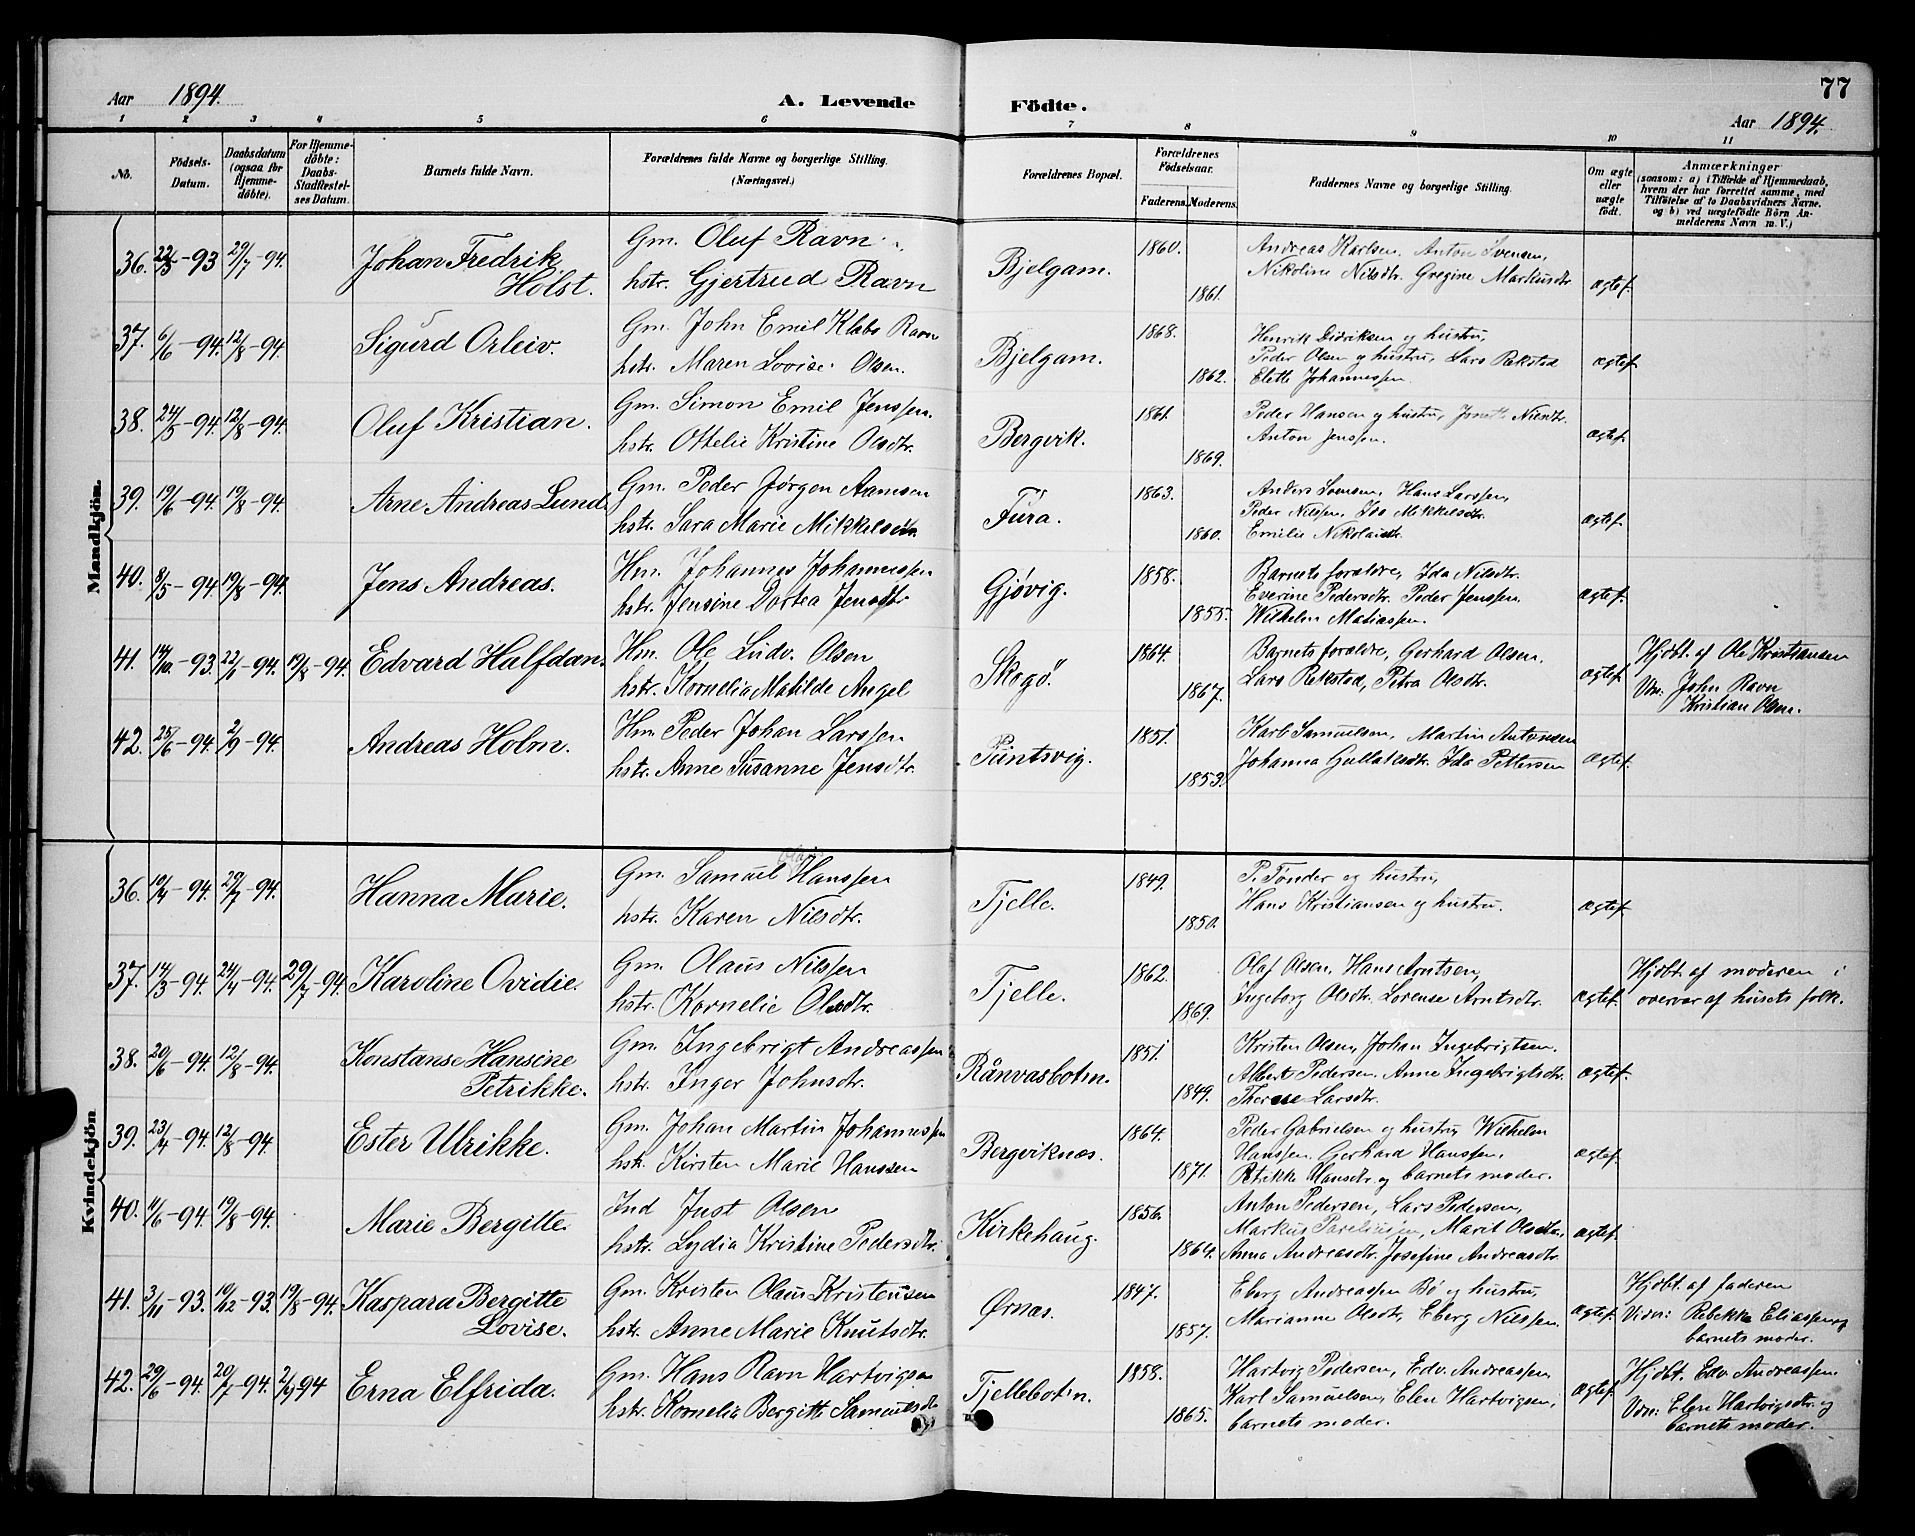 Aar 1894.
A. Levende Födte.
77
Aar 1894.
1 2 3 4 5 6 7 8 9 10 11
No.
Födsels-Datum.
Daabsdatum (ogsaa for Hjemme-döbte).
For Hjemme-döbte: Daabs-Stadfæstel-ses Datum.
Barnets fulde Navn.
Forældrenes fulde Navne og borgerlige Stilling. (Næringsvei.)
Forældrenes Bopæl.
Forældrenes Födselsaar.
Faderens. Moderens.
Faddernes Navne og borgerlige Stilling.
Om ægte eller uægte födt.
Anmærkninger
(saasom: a) i Tilfælde af Hjemmedaab, hvem der har forrettet samme, med Tilföielse af to Daabsvidners Navne, og b) ved uægtefödte Börn An-melderens Navn m. V.)
Mandkjön.
36. 22/5-93 29/7-94. Johan Fredrik Holst. Gm. Oluf Ravn hstr. Gjertrud Ravn Bjelgam. 1860. 1861. Andreas Karlsen. Anton Svensen, Nikoline Nilsdtr. Gregine Markusdtr ægtef.
37. 6/6-94. 12/8-94. Sigurd Orleiv. Gm. John Emil Klabo Ravn hstr. Maren Lovise Olsen. Bjelgam. 1868. 1862. Henrik Didriksen og hustru, Peder Olsen og hustru, Lars Rekstad Elette Johannessen. ægtef.
38. 24/5-94. 12/8-94. Oluf Kristian. Gm. Simon Emil Jenssen. hstr. Ottelie Kristine Olsdtr. Bergvik. 1861. 1869. Peder Hansen og hustru, Anton Jenssen. ægtef.
39. 19/6-94. 19/8-94. Arne Andreas Lund. Gm. Peder Jørgen Aamsen hstr. Sara Marie Mikkelsdtr. Fura. 1863. 1860. Anders Svensen, Hans Larssen, Peder Nilssen, Ida Mikkelsdtr. Emilie Nikolaisdtr. ægtef.
40. 8/5-94. 19/8-94. Jens Andreas. Hm. Johannes Johannessen hstr. Jensine Dortea Jensdtr Gjøvig. 1858. 1855. Barnets forældre, Ida Nilsdtr. Everine Pedersdtr. Peder Jenssen. Wilhelm Matiassen. ægtef.
41. 14/10-93. 22/1-94. 19/8-94. Edvard Halfdan. Hm. Ole Ludv. Olsen hstr. Kornelia Matilde Angel Skogö. 1864. 1867. Barnets forældre, Gerhard Olsen. Lars Rekstad, Petra Olsdtr. ægtef. Hjdbt. af Ole Kristiansen Vdn: John Ravn Kristian Olsen.
42. 25/6-94. 2/9-94. Andreas Holm. Hm. Peder Johan Larssen hstr. Anne Susanne Jensdtr. Puntsvig. 1851. 1853. Karl Samuelsen, Martin Antonsen Johanna Gullaksdtr. Ida Pettersen ægtef.
Kvindekjön
36. 10/4-94. 29/7-94. Hanna Marie. Gm. Samuel Olai Hanssen hstr. Karen Nilsdtr. Tjelle. 1849. 1850. P. Tönder og hustru, Hans Kristiansen og hustru. ægtef.
37. 14/3-94. 24/4-94. 29/7-94. Karoline Ovidie. Gm. Olaus Nilssen hstr. Kornelie Olsdtr. Tjelle. 1862. 1869. Olaf Olsen, Hans Arntsen, Ingeborg Olsdtr. Lorense Arntsdtr. ægtef. Hjdbt. af moderen i overvær af husets folk.
38. 20/6-94. 12/8-94. Konstanse Hansine Petrikke. Gm. Ingebrigt Andreassen hstr. Inger Johnsdtr. Rånvasbotn. 1851. 1849. Kristen Olsen, Johan Ingebrigtsen. Albert Pedersen. Anne Ingebrigtsdtr. Therese Larsdtr. ægtef.
39. 23/4-94. 12/8-94. Ester Ulrikke. Gm. Johan Martin Johannessen hstr. Kirsten Marie Hanssen Bergviknæs. 1864. 1871. Peder Gabrielsen og hustru, Wilhelm Hanssen. Gerhard Hanssen. Petrikke Hansdtr. og barnets moder. ægtef.
40. 11/6-94. 19/8-94. Marie Bergitte. Ind Just Olsen hstr. Lydia Kristine Pedersdtr. Kirkehaug. 1856. 1864. Anton Pedersen, Lars Pedersen, Markus Paveliussen, Marit Olsdtr. Anna Andreasdtr. Josefine Andreasdtr. ægtef.
41. 3/11-93. 19/12-93. 19/8-94. Kaspara Bergitte Lovise. Gm. Kristen Olaus Kristensen hstr. Anne Marie Knutsdtr. Ørnæs. 1847. 1857. Eberg Andreassen Bö og hustru, Marianne Olsdtr, Eberg Nilssen ægtef. Hjdbt. af faderen Vidn: Rebekka Eliassen og barnets moder.
42. 29/6-94. 20/7-94. 2/9 94 Erna Elfrida. Gm. Hans Ravn Hartvigsen hstr. Kornelia Bergitte Samuelsdtr Tjellebotn. 1858. 1865. Hartvig Pedersen, Edv. Andreassen, Karl Samuelsen, Elen Hartvigsen, barnets moder. ægtef. Hjdbt. Edv. Andreassen Vdn: Elen Hartvigsdtr. og barnets moder.